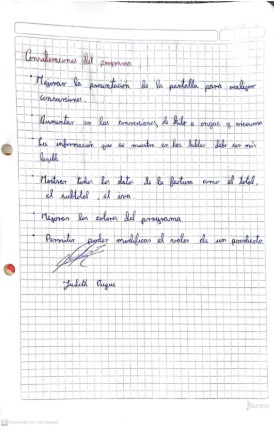 Consideraciones del programa
* Mejorar la presentación de la pantalla para realizar
conversiones.
* Aumentar en las conversiones, de kilo a onzas y viceversa
* La información que se muestra en las tablas debe ser más
legible
* Mostrar todos los datos de la factura como el total,
el subtotal, el iva
* Mejorar los colores del programa
* Permitir poder modificar el valor de un producto
Judith
Norma